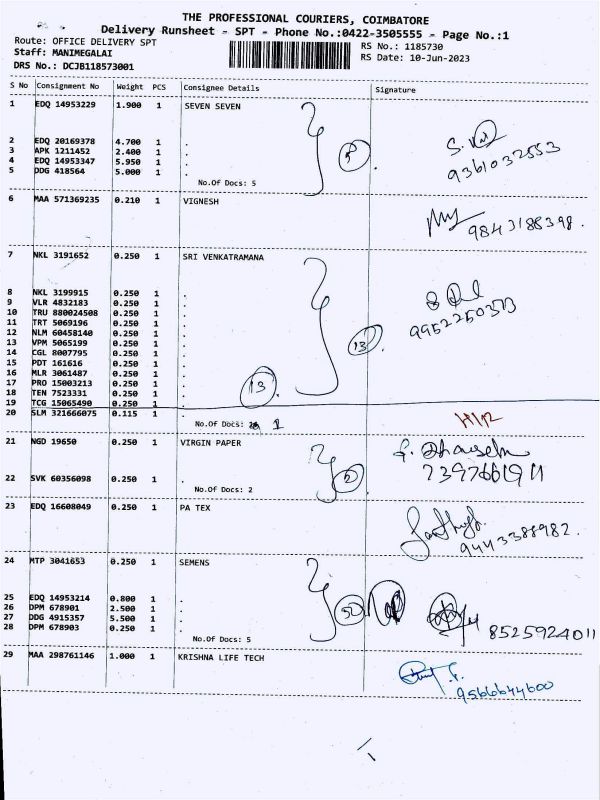 THE PROFESSIONAL COURIERS, COIMBATORE
Delivery Runsheet - SPT - Phone No.:0422-3505555 - Page No.:1
Route: OFFICE DELIVERY SPT
RS No.: 1185730
Staff: MANIMEGALAI
RS Date: 10-Jun-2023
DRS No.: DCJB118573001
S No Consignment No Weight PCS Consignee Details Signature
1 EDQ 14953229 1.900 1 SEVEN SEVEN
2 EDQ 20169378 4.700 1 .
3 APK 1211452 2.400 1 .
4 EDQ 14953347 5.950 1 .
5 DDG 418564 5.000 1 .
No.Of Docs: 5
9361032553
6 MAA 571369235 0.210 1 VIGNESH
9843188398.
7 NKL 3191652 0.250 1 SRI VENKATRAMANA
8 NKL 3199915 0.250 1 .
9 VLR 4832183 0.250 1 .
10 TRU 880024508 0.250 1 .
11 TRT 5069196 0.250 1 .
12 NLM 60458140 0.250 1 .
13 VPM 5065199 0.250 1 .
14 CGL 8007795 0.250 1 .
15 PDT 161616 0.250 1 .
16 MLR 3061487 0.250 1 .
17 PRO 15003213 0.250 1 .
18 TEN 7523331 0.250 1 .
19 TCG 15065490 0.250 1 .
20 SLM 321666075 0.115 1 .
No.Of Docs: 1
9952250373
13
13
21 NGD 19650 0.250 1 VIRGIN PAPER
22 SVK 60356098 0.250 1 .
No.Of Docs: 2
2
7397661911
23 EDQ 16608049 0.250 1 PA TEX
9443388982.
24 MTP 3041653 0.250 1 SEMENS
25 EDQ 14953214 0.800 1 .
26 DPM 678901 2.500 1 .
27 DDG 4915357 5.500 1 .
28 DPM 678903 0.250 1 .
No.Of Docs: 5
8525924011
29 MAA 298761146 1.000 1 KRISHNA LIFE TECH
9566644600